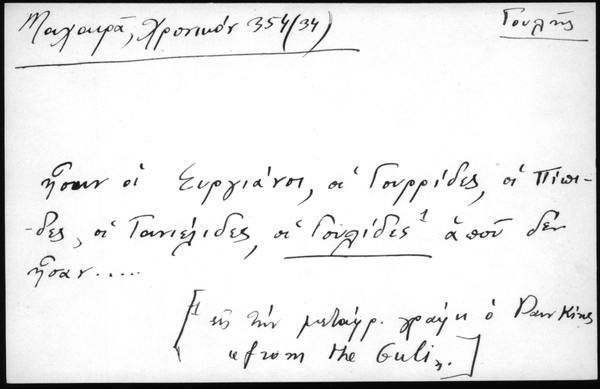 Μαχαιρᾶ, Χρονικόν 354 (34)
Γουλῆς
ἦσαν οἱ Συργιάνοι, οἱ Γουρρίδες, οἱ Πίπι-
-δες, οἱ Τανιέλιδες, οἱ Γουλίδες¹ ἀποῦ δὲν
ἦσαν.....
[¹ εἰς τὴν μετάφρ. γράφει ὁ Dawkins
"from the Guli".]